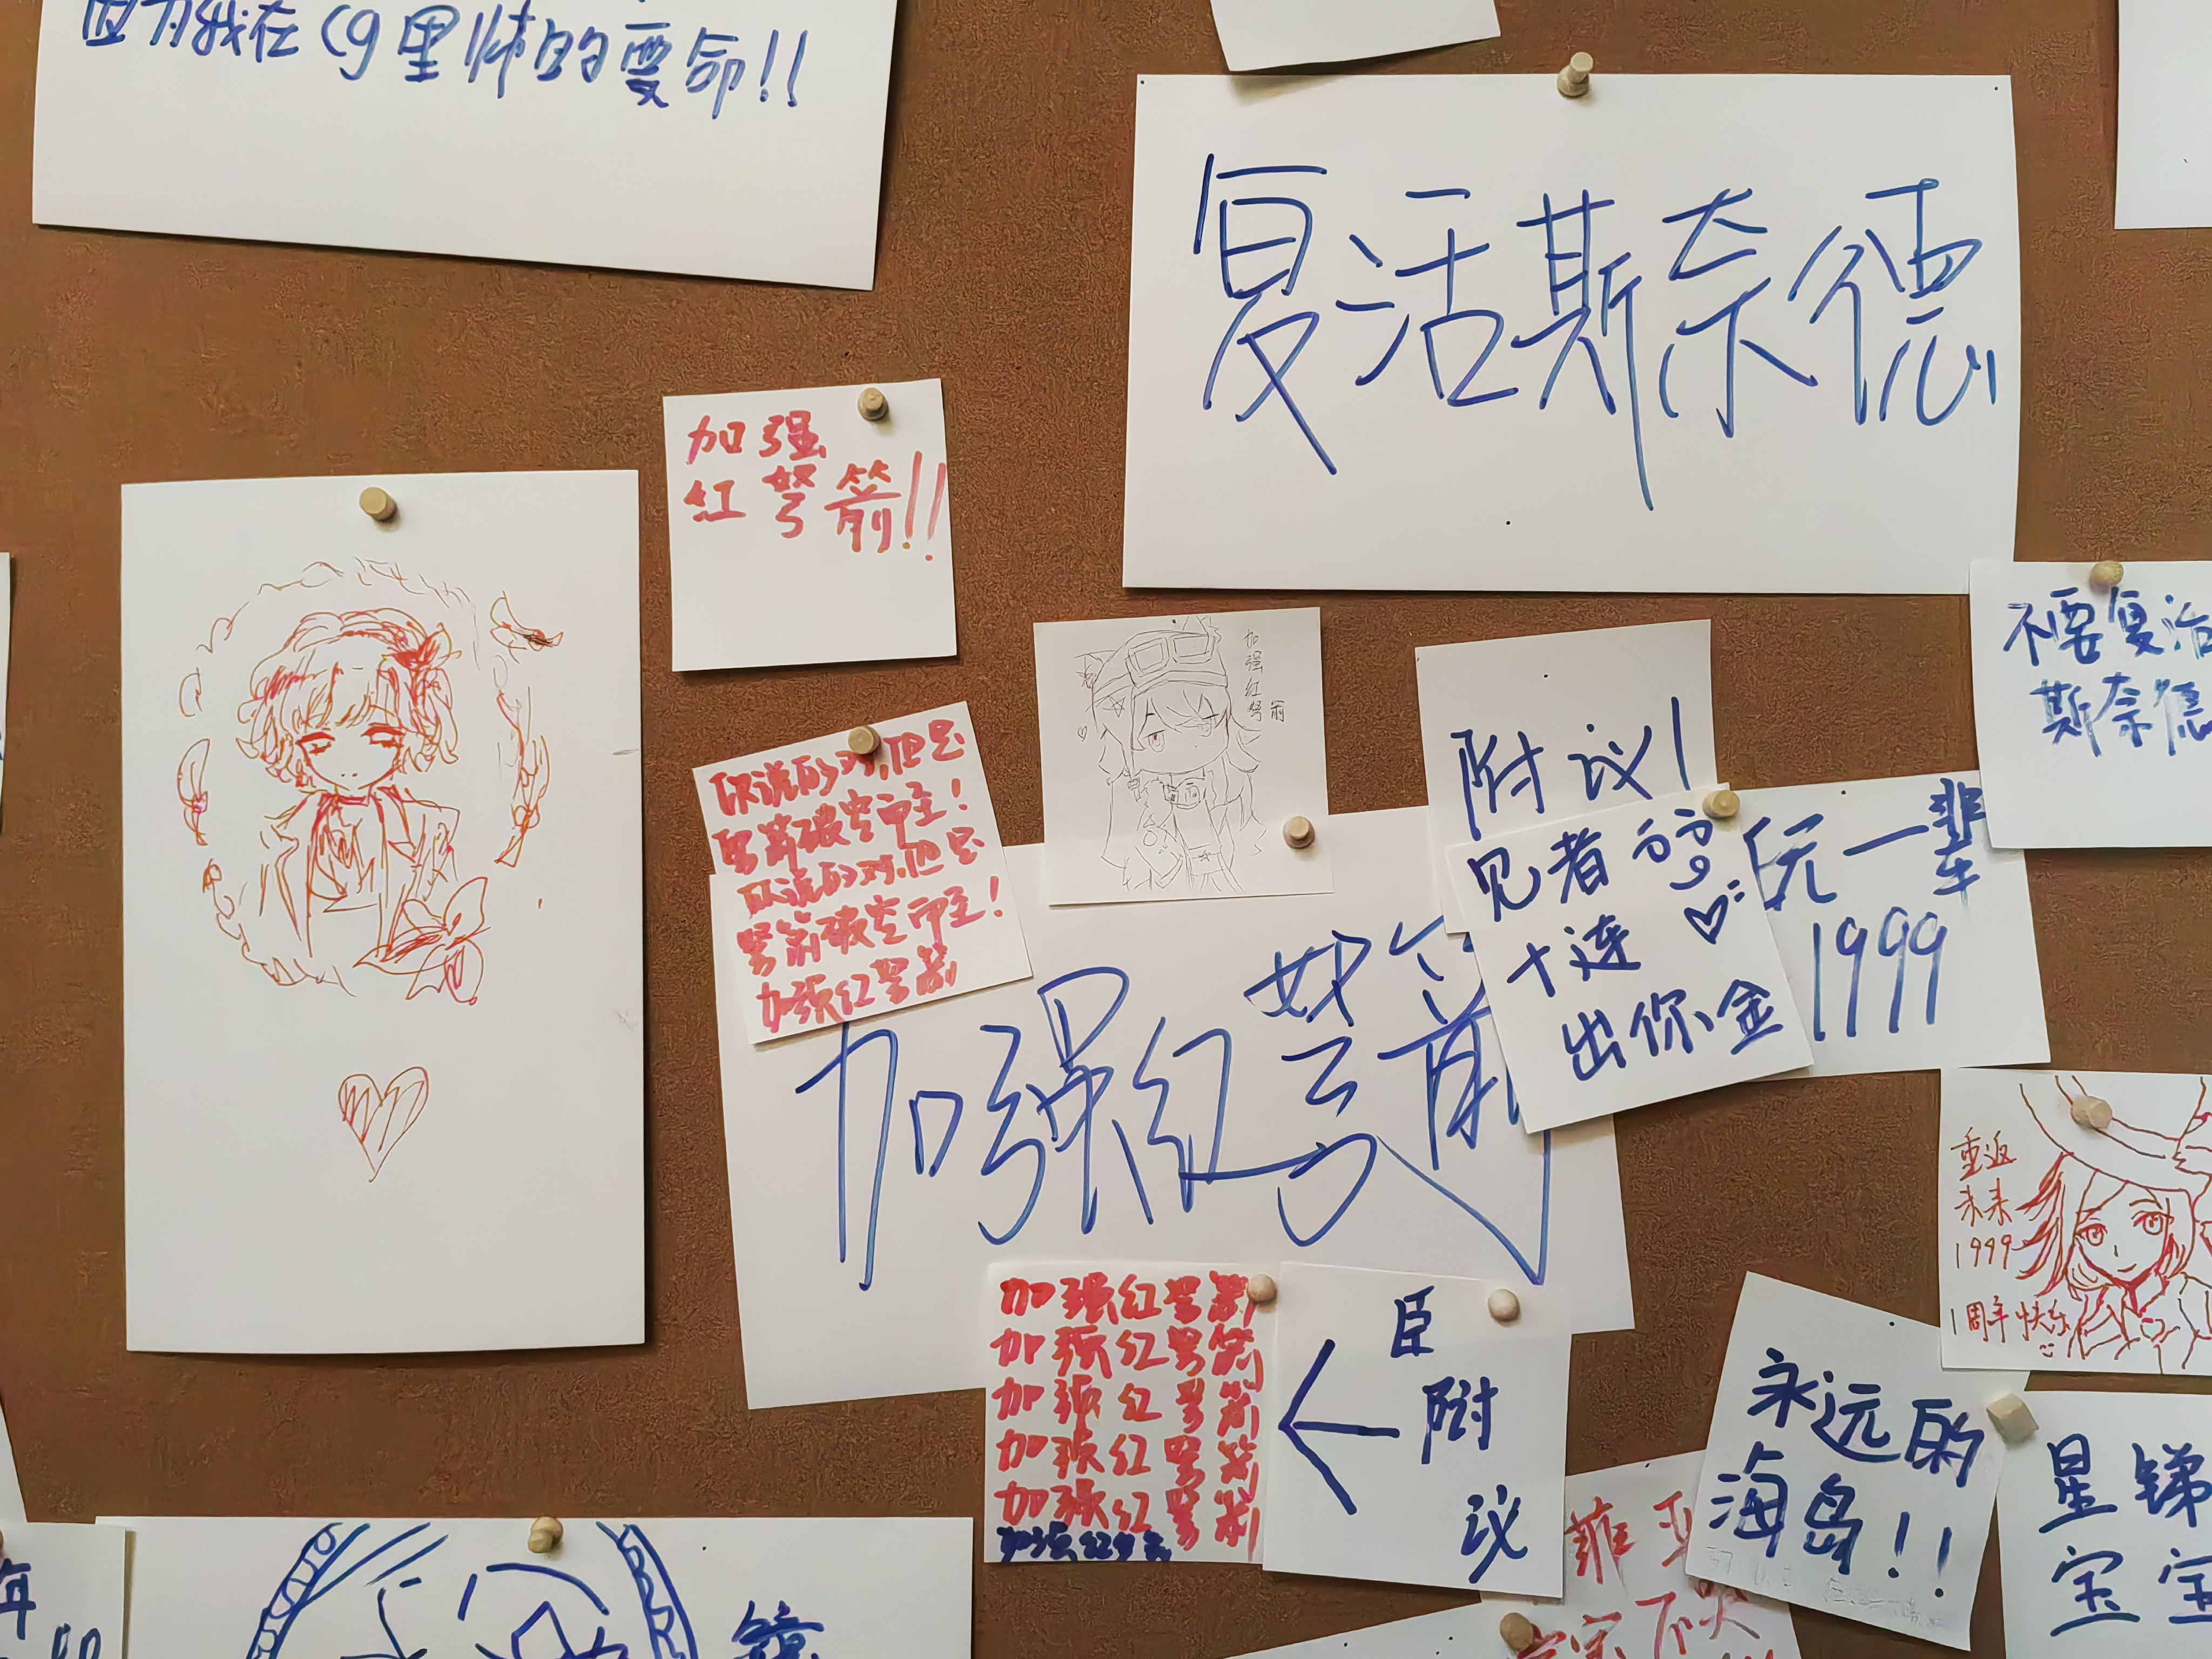 因为我在cg里怖的要命!!
复活斯奈德
加强
红弩箭!!
不要复活
斯奈德
加强红弩箭
附议!
你说的对,但是
弩箭破空而至!
你说的对,但是
弩箭破空而至!
加强红弩箭
见者
十连
出你金
玩一辈
1999
加强红弩箭
重返
未来
1999
1周年快乐
加强红弩箭
加强红弩箭
加强红弩箭
加强红弩箭
加强红弩箭
加强红弩箭
臣
附
议
永远的
海岛!!
星锑
宝宝
菲
不哭
年
镜